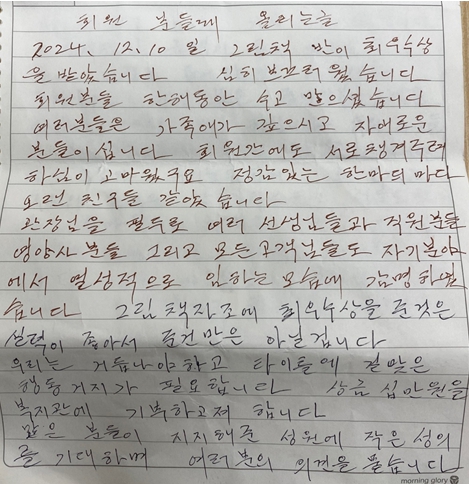 회원 분들께 올리는글
2024. 12. 10 일 그림책 반이 최우수상
을 받았습니다 심히 부끄러웠습니다
회원분들 한해동안 수고 많으셨습니다
여러분들은 가족애가 깊으시고 자애로운
분들이십니다 회원간에도 서로챙겨주려
하심이 고마웠구요 정감있는 한마디 마다
오랜 친구들 같았습니다
관장님을 필두로 여러 선생님들과 직원분들
영양사분들 그리고 모든고객님들도 자기분야
에서 열성적으로 임하는 모습에 감명하였
습니다 그림책자조에 최우수상을 준것은
실력이 좋아서 준건만은 아닐겁니다
우리는 거듭나야하고 타이틀에 걸맞은
행동거지가 필요합니다 상금 십만원을
복지관에 기부하고져 합니다
많은 분들이 지지해준 성원에 작은성의
를 기대하며 여러분의 의견을 묻습니다
morning glory